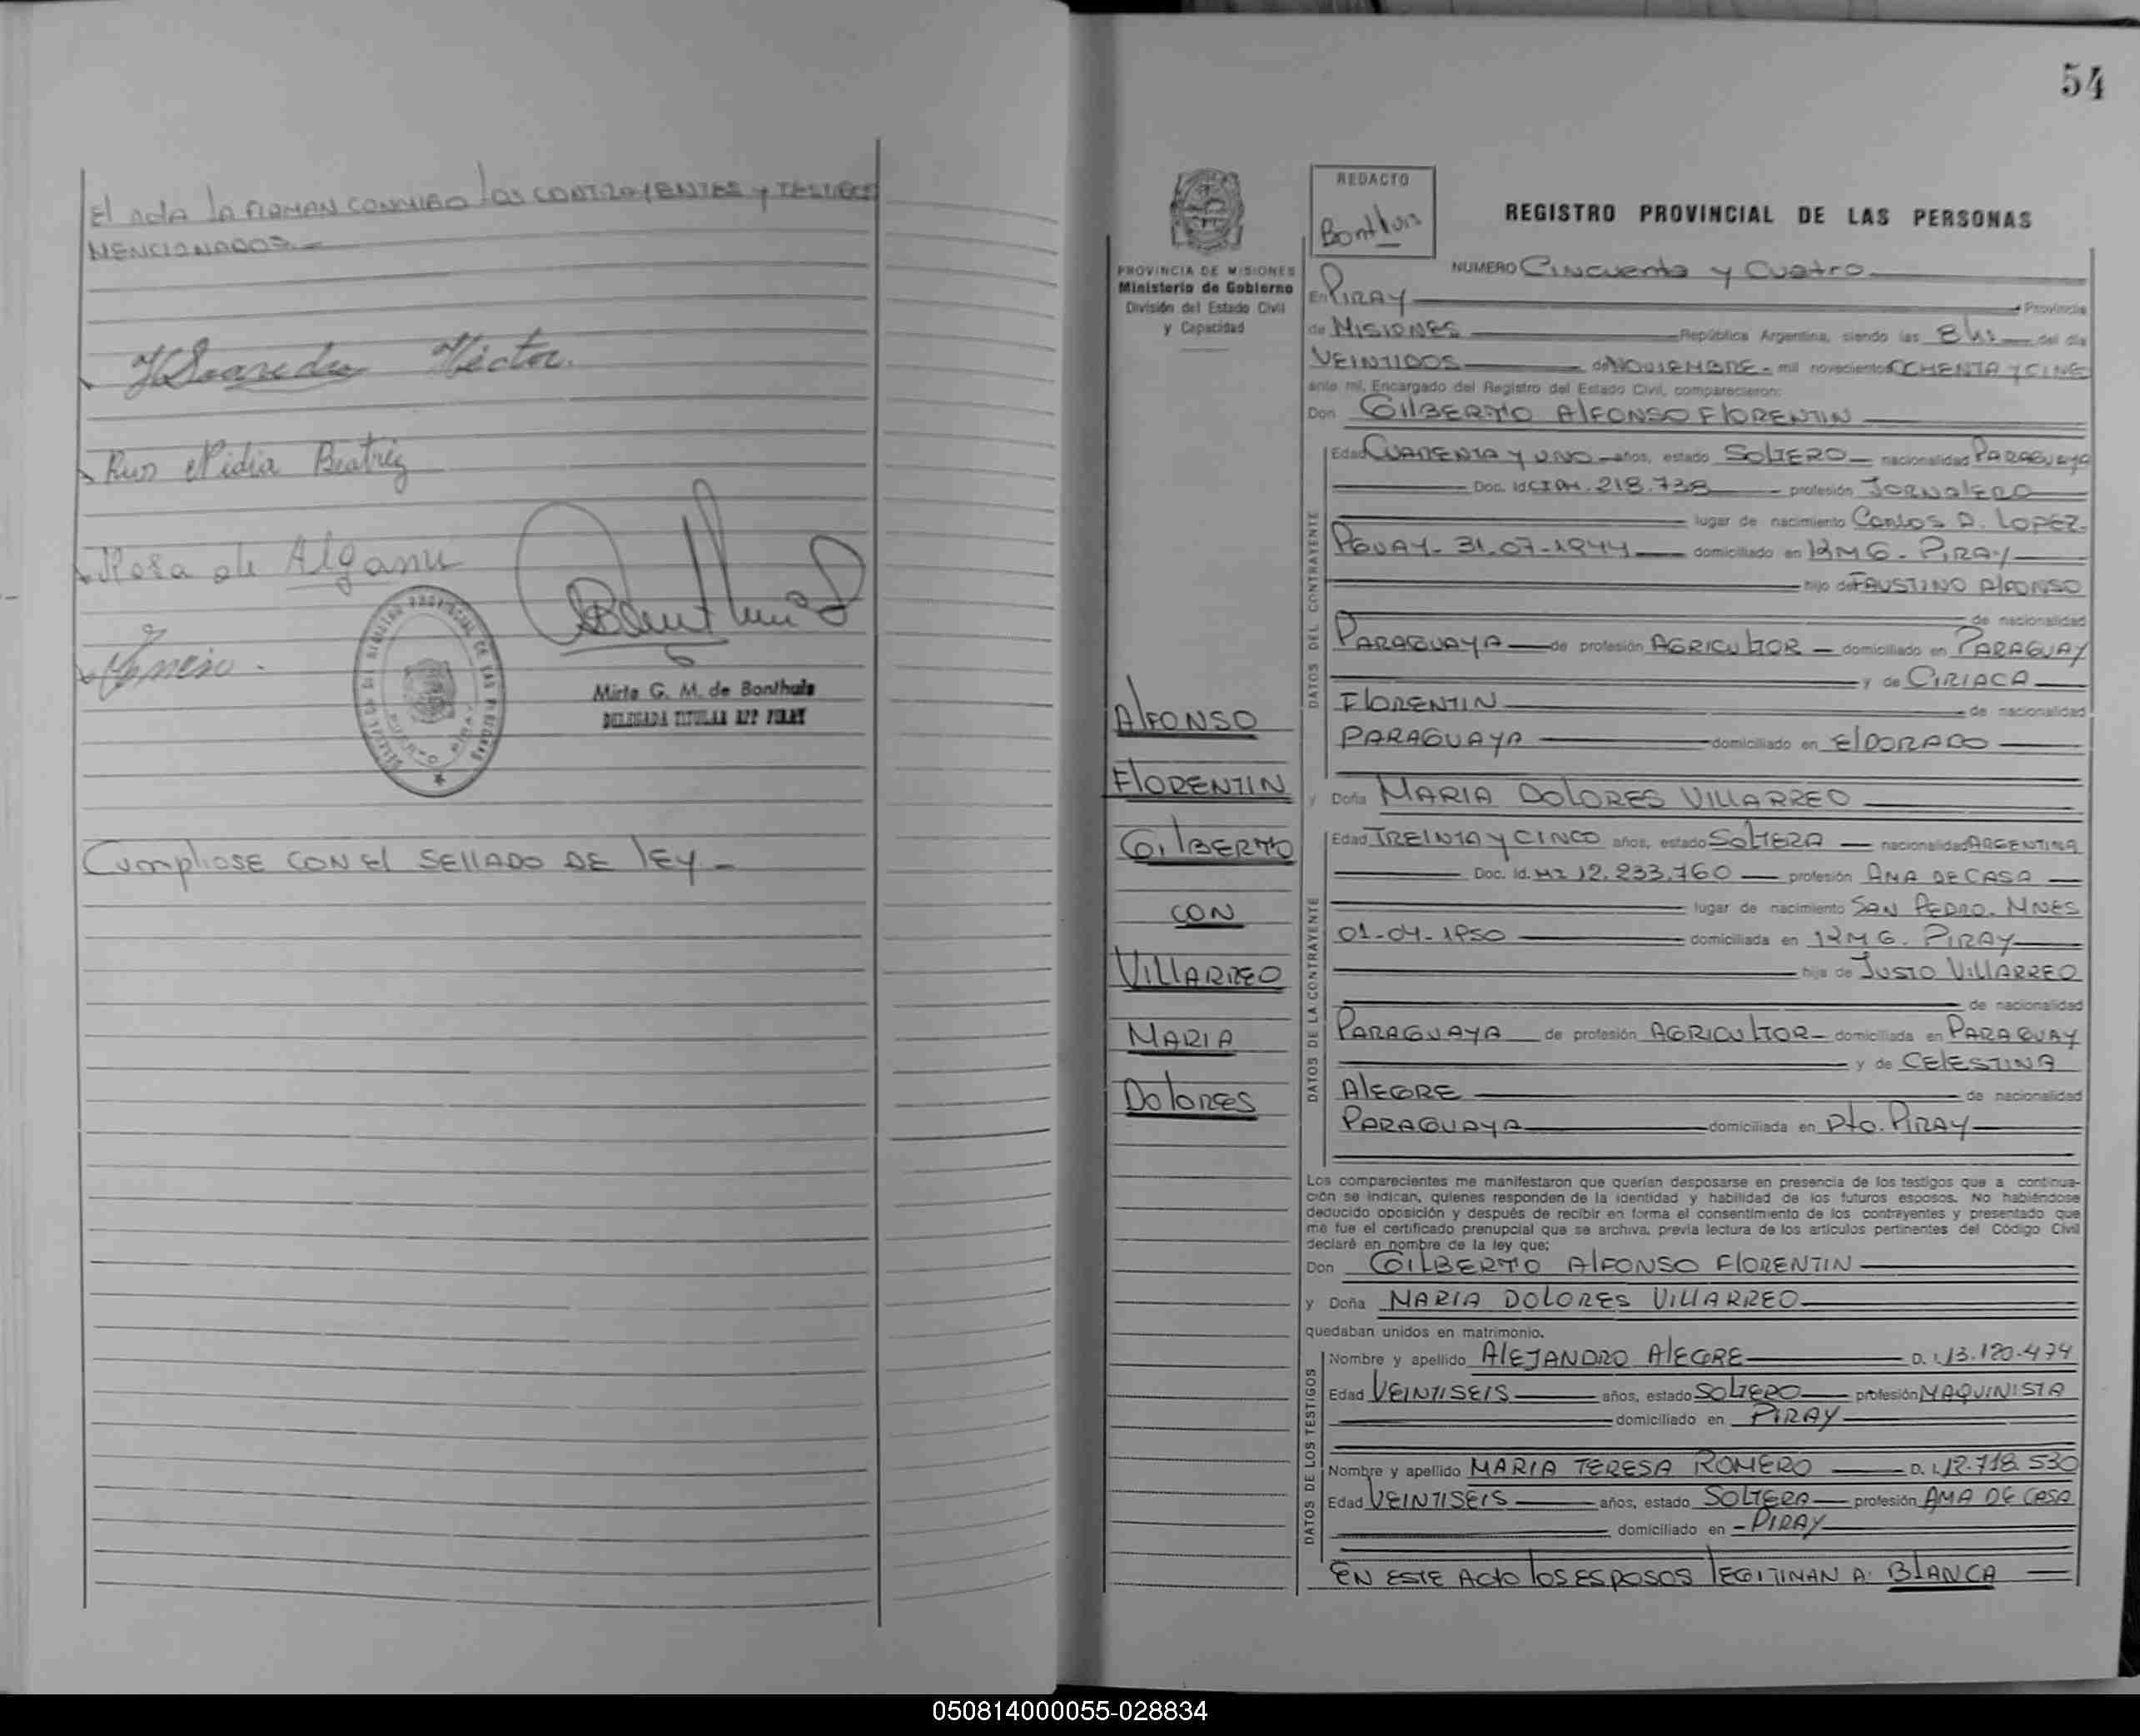 El acta la firman conmigo los contrayentes y testigos
mencionados.—
Héctor.
Ruiz Nidia Beatriz
Rosa de
Mirta G. M. de Bonthuis
DELEGADA TITULAR RPP PIRAY
Cumpliose con el sellado de ley—
54
REDACTO
Bonthuis
REGISTRO PROVINCIAL DE LAS PERSONAS
PROVINCIA DE MISIONES
Ministerio de Gobierno
División del Estado Civil
y Capacidad
NUMERO Cincuenta y Cuatro
En PIRAY Provincia
de MISIONES República Argentina, siendo las 8 hs del día
VEINTIDOS de NOVIEMBRE - mil novecientos OCHENTA Y CINC
ante mí, Encargado del Registro del Estado Civil, comparecieron:
Don GILBERTO AlFONSO FlORENTIN
Edad CUARENTA Y UNO años, estado SOLTERO nacionalidad PARAGUAYA
Doc. Id. 218.738 profesión JORNALERO
lugar de nacimiento Carlos A. LOPEZ.
PGUAY- 31-07-1944 domiciliado en KM 6. PIRAY
hijo de FAUSTINO AlFONSO
de nacionalidad
PARAGUAYA de profesión AGRICULTOR domiciliado en PARAGUAY
y de CIRIACA
FlORENTIN de nacionalidad
PARAGUAYA domiciliado en ElDORADO
DATOS DEL CONTRAYENTE
y Doña MARIA DOLORES VILLARREO
Edad TREINTA Y CINCO años, estado SOLTERA nacionalidad ARGENTINA
Doc. Id. 12.233.760 profesión AMA DE CASA
lugar de nacimiento SAN PEDRO. MNES
01-04-1950 domiciliada en KM 6. PIRAY
hija de JUSTO VILLARREO
de nacionalidad
PARAGUAYA de profesión AGRICULTOR domiciliada en PARAGUAY
y de CELESTINA
AlEGRE de nacionalidad
PARAGUAYA domiciliada en Pto. PIRAY
DATOS DE LA CONTRAYENTE
AlFONSO
FlORENTIN
GILBERTO
CON
VILLARREO
MARIA
DOLORES
Los comparecientes me manifestaron que querían desposarse en presencia de los testigos que a continua-
ción se indican, quienes responden de la identidad y habilidad de los futuros esposos. No habiéndose
deducido oposición y después de recibir en forma el consentimiento de los contrayentes y presentado que
me fue el certificado prenupcial que se archiva, previa lectura de los artículos pertinentes del Código Civil
declaré en nombre de la ley que:
Don GILBERTO AlFONSO FlORENTIN
y Doña MARIA DOLORES VILLARREO
quedaban unidos en matrimonio.
Nombre y apellido AlEJANDRO AlEGRE D. I. 13.120.474
Edad VEINTISEIS años, estado SOLTERO profesión MAQUINISTA
domiciliado en PIRAY
Nombre y apellido MARIA TERESA ROMERO D. I. 12.718.530
Edad VEINTISEIS años, estado SOLTERA profesión AMA DE CASA
domiciliado en - PIRAY
DATOS DE LOS TESTIGOS
EN ESTE ACTO los ESPOSOS LEGITIMAN A: BLANCA
050814000055-028834